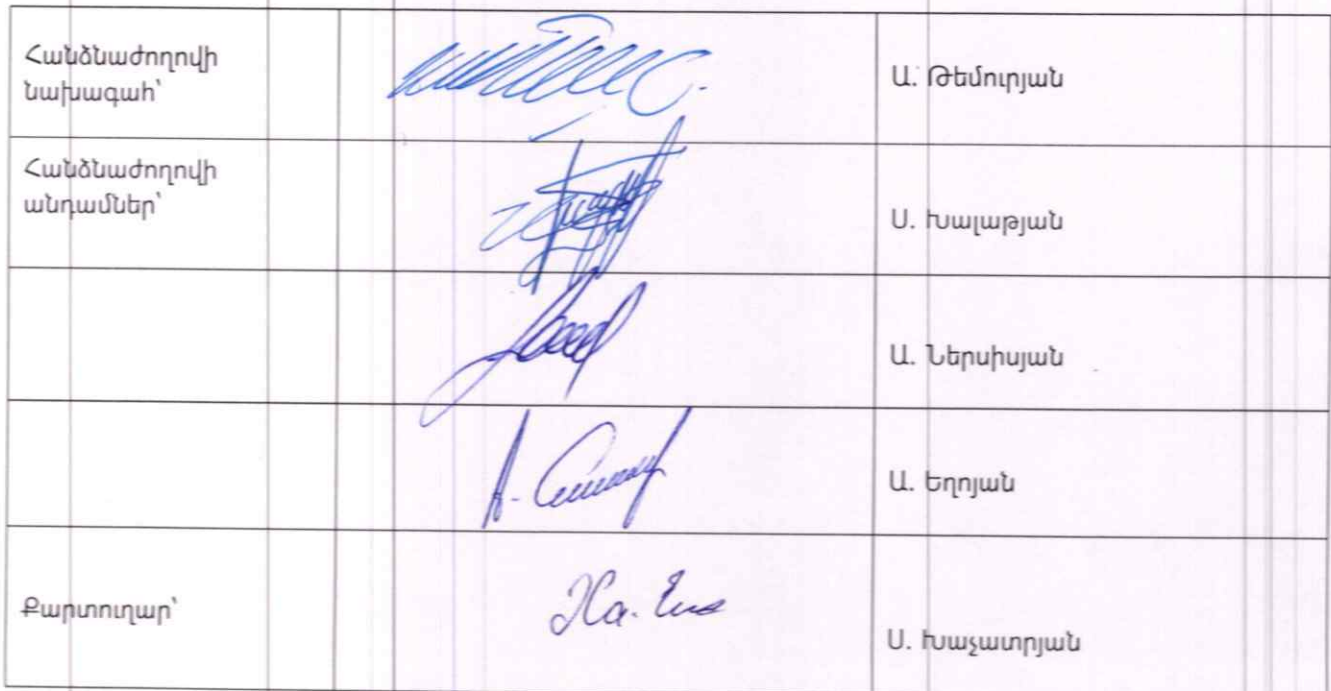 Հանձնաժողովի
նախագահ՝
Ա. Թեմուրյան
Հանձնաժողովի
անդամներ՝
Ս. Խալաթյան
Ա. Ներսիսյան
Ա. Եղոյան
Քարտուղար՝
Ս. Խաչատրյան